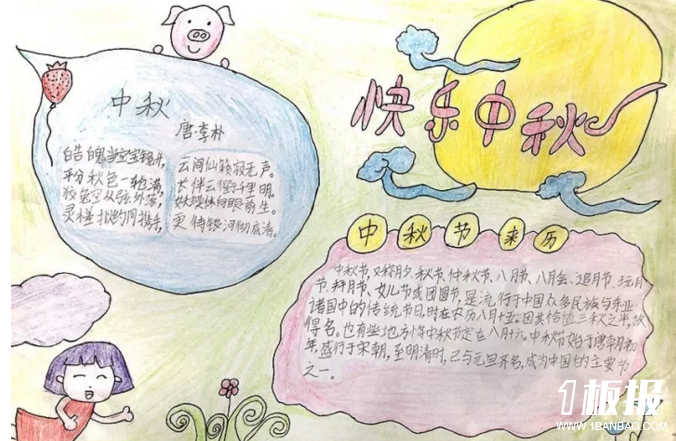 中秋
唐·李朴
皓魄当空宝镜升，云间仙籁寂无声。
平分秋色一轮满，长伴云衢千里明。
狡兔空从弦外落，妖蟆休向眼前生。
灵槎拟约同携手，更待银河彻底清。
快乐中秋
中秋节来历
中秋节，又称月夕、秋节、仲秋节、八月节、八月会、追月节、玩月
节、拜月节、女儿节或团圆节，是流行于中国众多民族与东亚
诸国中的传统节日，时在农历八月十五；因其恰值三秋之半，故
得名，也有些地方将中秋节定在八月十六。中秋节始于唐朝初
年，盛行于宋朝，至明清时，已与元旦齐名，成为中国的主要节
之一。
1板报
WWW.1BANBAO.COM